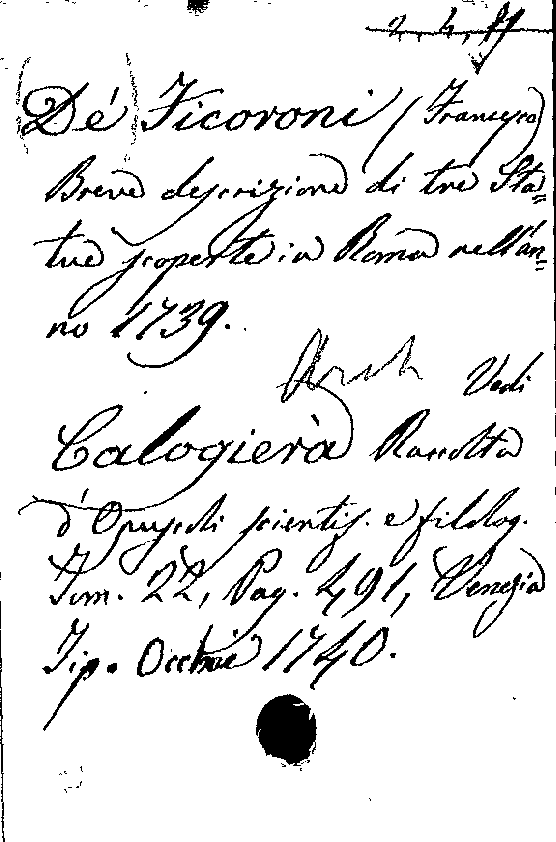 (Dé) Ficoroni (Francesco)
Breve descrizione di tre Sta=
tue scoperte in Roma nell'an=
no 1739.
Vedi
Calogierà Raccolta
d'Opuscoli scientif. e filolog.
Tom. 22, Pag. 491, Venezia
Tip. Occhi 1740.